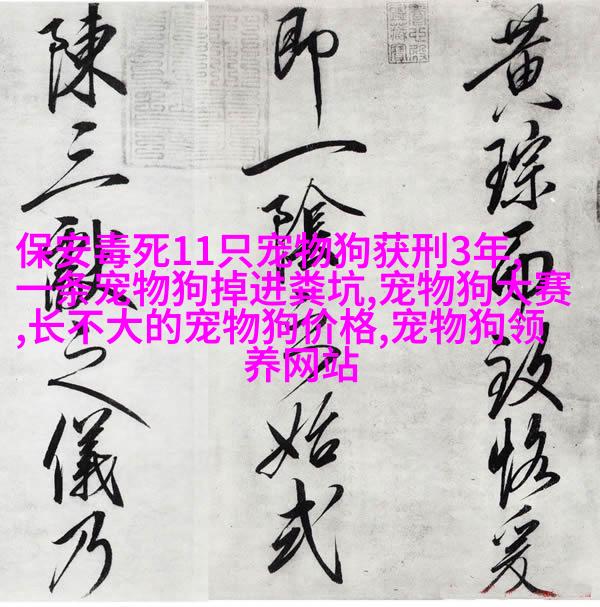 黄琮而致恪爰
即一陰始式
陳三獻之儀乃
保安毒死11只宠物狗获刑3年,
一条宠物狗掉进粪坑,宠物狗大赛
,长不大的宠物狗价格,宠物狗领
养网站